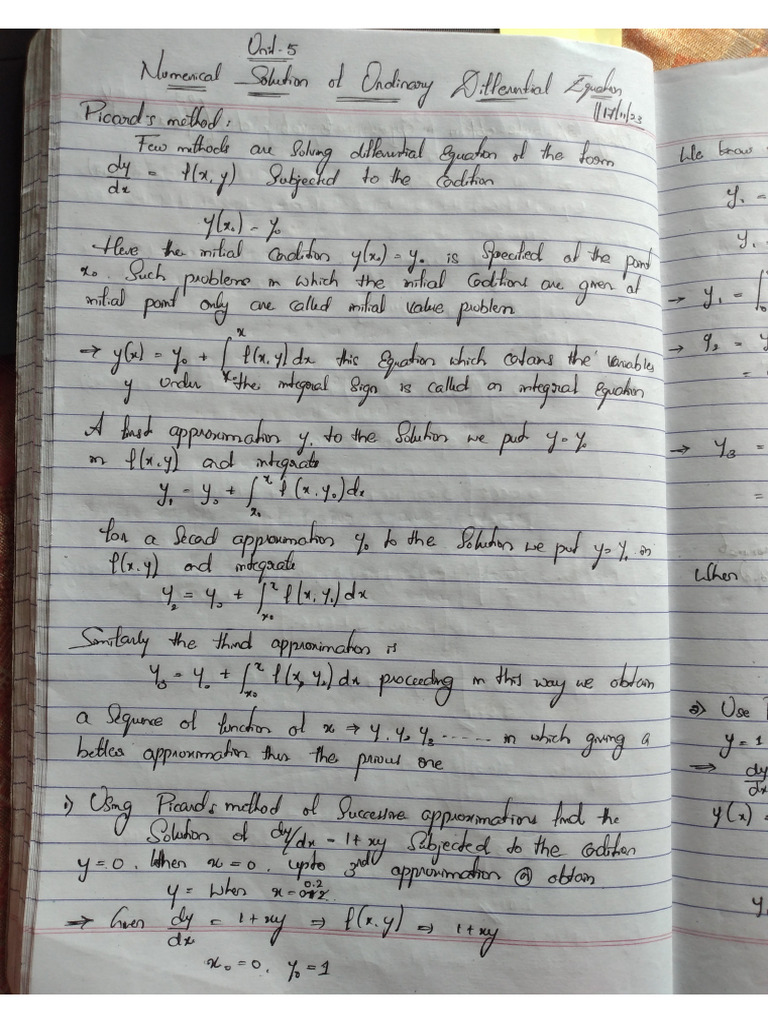 Unit-5
Numerical Solution of Ordinary Differential Equation
17/11/23
Picard's method:
Few methods are Solving differential Equation of the form
dy/dx = f(x, y) Subjected to the Condition
y(x₀) = y₀
Here the initial Condition y(x₀) = y₀ is Specified at the point
x₀. Such problems in which the initial Coditions are given at
initial point only are called initial value problem
→ y(x) = y₀ + ∫ₓ₀ˣ f(x, y) dx this Equation which cotans the variables
y under the integral Sign is called an integral Equation
A first approximation y₁ to the Solution we put y = y₀
in f(x, y) and integrate
y₁ = y₀ + ∫ₓ₀ˣ f(x, y₀) dx
for a Secod approximation y₀ to the Solution we put y = y₁ in
f(x, y) and integrate
y₂ = y₀ + ∫ₓ₀ˣ f(x, y₁) dx
Similarly the third approximation is
y₃ = y₀ + ∫ₓ₀ˣ f(x, y₂) dx proceeding in this way we obtain
a Sequence of function of x → y₁ y₂ y₃ ...... in which giving a
better approximation than the privous one
1) Using Picard's method of Successive approximations find the
Solution of dy/dx = 1+xy Subjected to the Codition
y = 0. When x = 0. upto 3rd approximation @ obtain
y = when x = 0.2
⇒ Given dy/dx = 1 + xy ⇒ f(x, y) ⇒ 1 + xy
x₀ = 0. y₀ = 1
We know
y₁ =
y₁ =
→ y₁ = ∫
→ y₂ = y
=
→ y₃ =
=
When
2) Use
y = 1
⇒ dy/dx
y(x) =
y₁